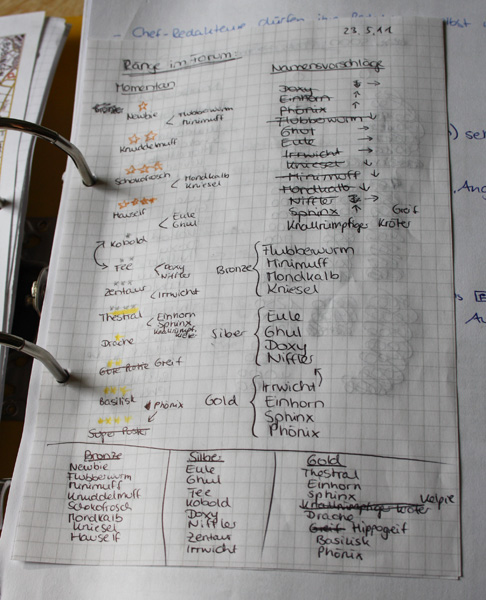 - Chef-Redakteure dürfen
23.5.11
Ränge im Forum:
Namensvorschläge
Momentan
Doxy
Einhorn
Phönix
Newbie < Flubberwurm
Minimuff
Flubberwurm
Ghul
Eule
Knuddelmuff
Irrwicht
Kniesel
Minimuff
Schokofrosch < Mondkalb
Kniesel
Mondkalb
Niffler
Sphinx
Greif
Knallrümpfige Kröter
Hauself < Eule
Ghul
Kobold
Tee < Doxy
Niffler
Zentaur < Irrwicht
Bronze { Flubberwurm
Minimuff
Mondkalb
Kniesel
Thestral < Einhorn
Sphinx
Drache
Silber { Eule
Ghul
Doxy
Niffler
Greif
Basilisk
Phönix
Super Poster
Gold { Irrwicht
Einhorn
Sphinx
Phönix
Bronze
Newbie
Flubberwurm
Minimuff
Knuddelmuff
Schokofrosch
Mondkalb
Kniesel
Hauself
Silber
Eule
Ghul
Tee
Kobold
Doxy
Niffler
Zentaur
Irrwicht
Gold
Thestral
Einhorn
Sphinx
Knallrümpfige Kröter Kelpie
Drache
Greif Hippogreif
Basilisk
Phönix